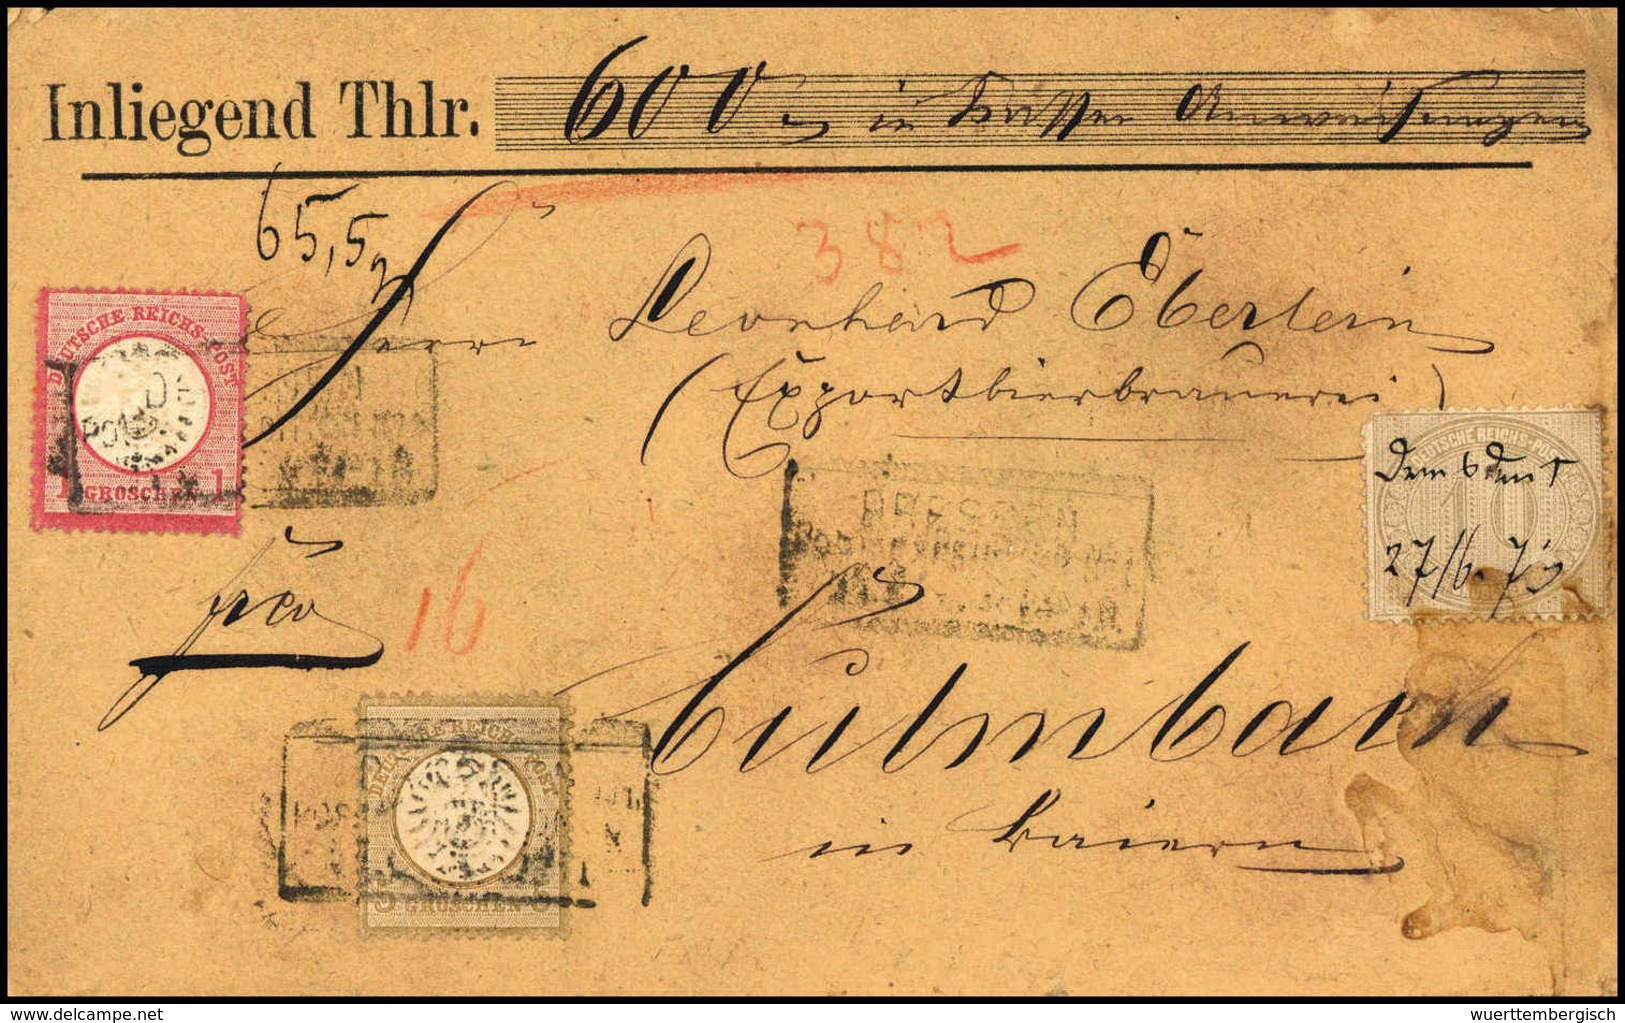 Inliegend Thlr. 600 in Kassen Anweisungen
65,5
382
Herrn Leonhard Eberlein
(Exportbierbrauerei)
DEUTSCHE REICHS-POST
1 GROSCHEN 1
DEUTSCHE REICHS-POST
10
Dresden
27/6. 73
DRESDEN
frco
16
Culmbach
in Baiern
DEUTSCHE REICHS-POST
5 GROSCHEN 5
delcampe.net
wuerttembergisch